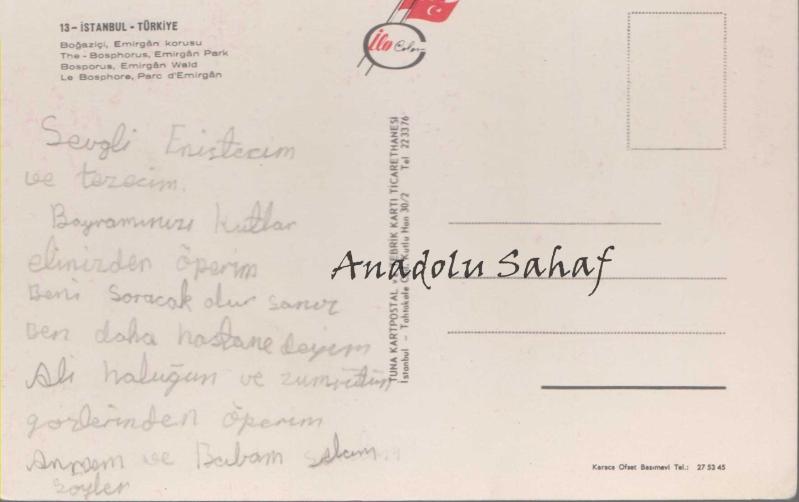 13 – İSTANBUL - TÜRKİYE
Boğaziçi, Emirgân korusu
The - Bosphorus, Emirgân Park
Bosporus, Emirgân Wald
Le Bosphore, Parc d'Emirgân
İlo Color
Sevgli Enistecim
ve tezecim.
Bayramınızı kutlar
elinizden öperim
Beni Soracak olur sanız
Ben daha hastane deyim
Ali haluğun ve zumrütün
gozlerinden öperim
Annem ve Babam selam
söyler
TUNA KARTPOSTAL TEBRİK KARTI TİCARETHANESİ
İstanbul – Tahtakale Kutlu Han 30/2 Tel 223376
Anadolu Sahaf
Karaca Ofset Basımevi Tel.: 27 53 45